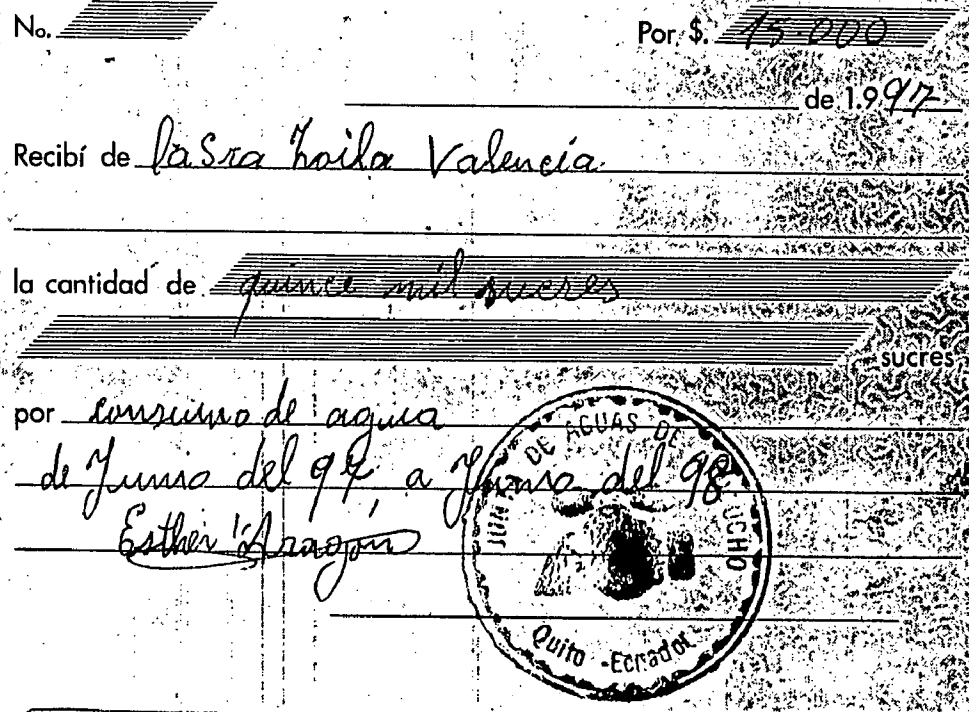 No.
Por, $. 15.000
de 1.997
Recibí de la Sra Zoila Valencia
la cantidad de quince mil sucres
sucres
por consumo de agua
de Junio del 97 a Junio del 98
Esther Aragón
JUNTA DE AGUAS DE UCHO
Quito - Ecuador